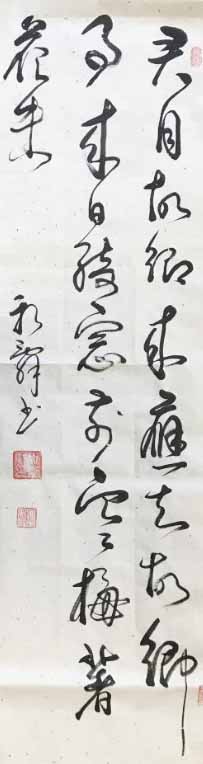 君自故鄉來應知故鄉
事來日綺窓前寒梅著
花未
书